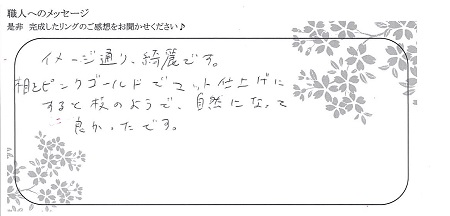 職人へのメッセージ
是非 完成したリングのご感想をお聞かせください♪
イメージ通り、綺麗です。
ピンクゴールドでマット仕上げに
すると枝のようで、自然になって
良かったです。